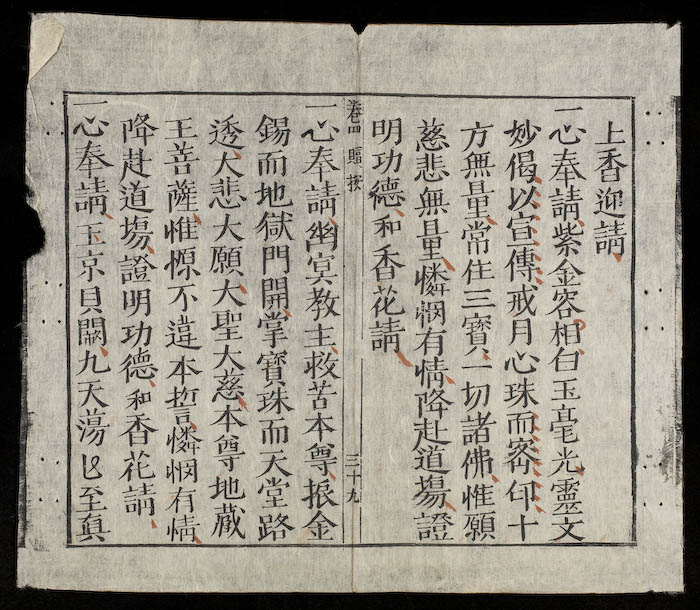 上香迎請
一心奉請紫金容相白玉毫光靈文
妙偈以宣傳戒月心珠而密印十
方無量常住三寶一切諸佛惟願
慈悲無量憐憫有情降赴道塲證
明功德和香花請
卷四 三十九
一心奉請幽冥教主救苦本尊振金
錫而地獄門開掌寶珠而天堂路
透大悲大願大聖大慈本尊地藏
王菩薩惟愿不違本誓憐憫有情
降赴道塲證明功德和香花請
一心奉請玉京貝闕九天蕩〻至眞